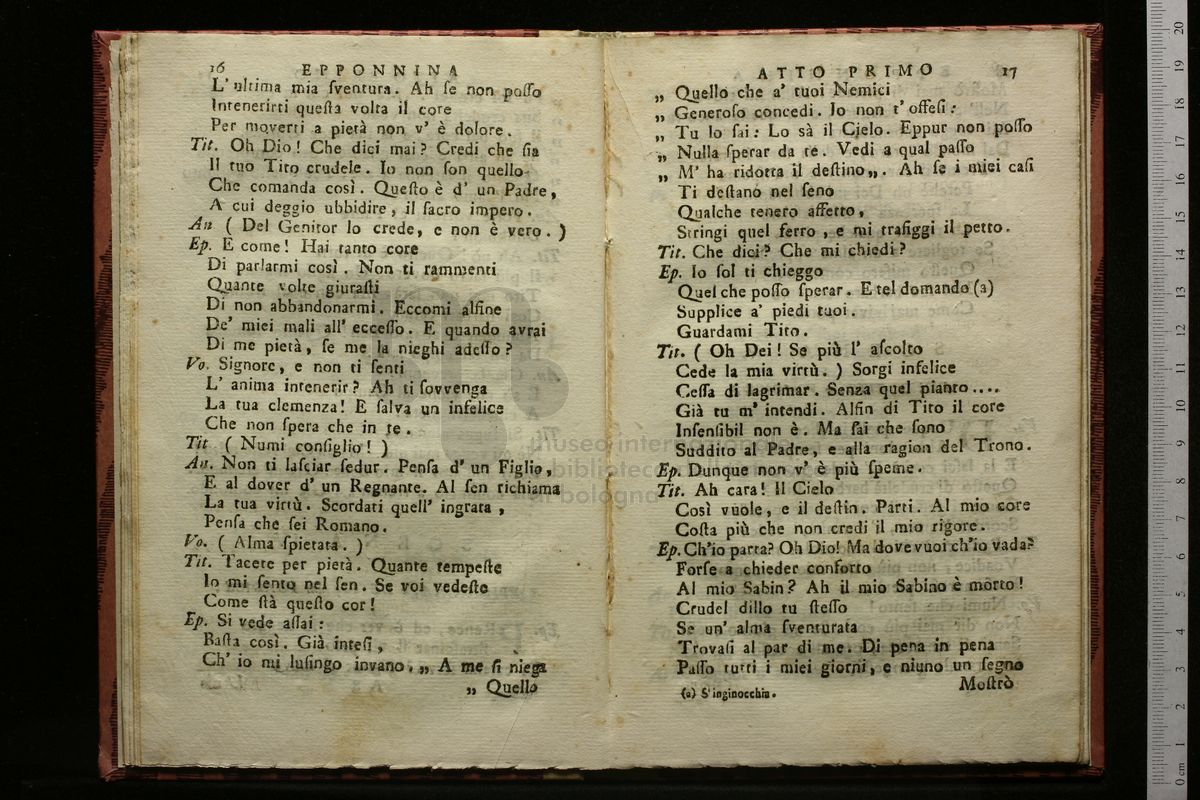 16 EPPONNINA
L' ultima mia ſventura. Ah ſe non poſſo
Intenerirti queſta volta il core
Per moverti a pietà non v' è dolore.
Tit. Oh Dio! Che dici mai? Credi che ſia
Il tuo Tito crudele. Io non ſon quello
Che comanda così. Queſto è d' un Padre,
A cui deggio ubbidire, il ſacro impero.
An ( Del Genitor lo crede, e non è vero. )
Ep. E come! Hai tanto core
Di parlarmi così. Non ti rammenti
Quante volte giuraſti
Di non abbandonarmi. Eccomi alfine
De' miei mali all' ecceſſo. E quando avrai
Di me pietà, ſe me la nieghi adeſſo?
Vo. Signore, e non ti ſenti
L' anima intenerir? Ah ti ſovvenga
La tua clemenza! E ſalva un infelice
Che non ſpera che in te.
Tit ( Numi conſiglio! )
An. Non ti laſciar ſedur. Penſa d' un Figlio,
E al dover d' un Regnante. Al ſen richiama
La tua virtù. Scordati quell' ingrata,
Penſa che ſei Romano.
Vo. ( Alma ſpietata. )
Tit. Tacete per pietà. Quante tempeſte
Io mi ſento nel ſen. Se voi vedeſte
Come ſtà queſto cor!
Ep. Si vede aſſai:
Baſta così. Già inteſi,
Ch' io mi luſingo invano. „ A me ſi niega
„ Quello
ATTO PRIMO 17
„ Quello che a' tuoi Nemici
„ Generoſo concedi. Io non t' offeſi:
„ Tu lo ſai: Lo sà il Cielo. Eppur non poſſo
„ Nulla ſperar da te. Vedi a qual paſſo
„ M' ha ridotta il deſtino„. Ah ſe i miei caſi
Ti deſtano nel ſeno
Qualche tenero affetto,
Stringi quel ferro, e mi trafiggi il petto.
Tit. Che dici? Che mi chiedi?
Ep. Io ſol ti chieggo
Quel che poſſo ſperar. E tel domando (a)
Supplice a' piedi tuoi.
Guardami Tito.
Tit. ( Oh Dei! Se più l' aſcolto
Cede la mia virtù. ) Sorgi infelice
Ceſſa di lagrimar. Senza quel pianto....
Già tu m' intendi. Alfin di Tito il core
Inſenſibil non è. Ma ſai che ſono
Suddito al Padre, e alla ragion del Trono.
Ep. Dunque non v' è più ſpeme.
Tit. Ah cara! Il Cielo
Così vuole, e il deſtin. Parti. Al mio core
Coſta più che non credi il mio rigore.
Ep. Ch'io parta? Oh Dio! Ma dove vuoi ch'io vada?
Forſe a chieder conforto
Al mio Sabin? Ah il mio Sabino è morto!
Crudel dillo tu ſteſſo
Se un' alma ſventurata
Trovaſi al par di me. Di pena in pena
Paſſo tutti i miei giorni, e niuno un ſegno
Moſtrò
(a) S'inginocchia.
museo internazionale
biblioteca
bologna